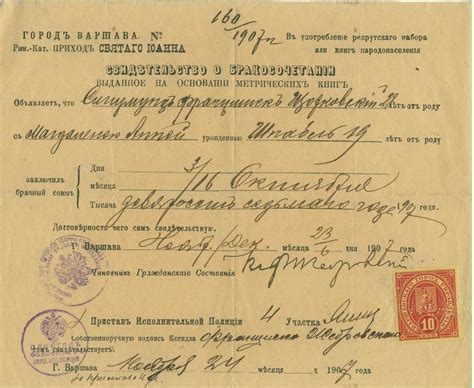 160/1907 г.
ГОРОДЪ ВАРШАВА. №
Рим.-Кат. ПРИХОДЪ СВЯТАГО ІОАННА
Въ употребленіе рекрутскаго набора
или книгъ народонаселенія
СВИДѢТЕЛЬСТВО О БРАКОСОЧЕТАНІИ
ВЫДАННОЕ НА ОСНОВАНІИ МЕТРИЧЕСКИХЪ КНИГЪ
Объявляетъ, что Сигизмундъ Францишекъ 22 лѣтъ отъ роду
съ Магдаленою Анной урожденною Шнабель 19 лѣтъ отъ роду
заключилъ брачный союзъ
Дня 3/16
мѣсяца Октября
Тысяча девятьсотъ седьмаго года 907 года.
Достовѣрность чего симъ свидѣтельствую.
Г. Варшава Нояб/Дек. мѣсяца 23/6 дня 1907 года
Чиновникъ Гражданскаго Состоянія
Приставъ Исполнительной Полиціи 4 Участка
Собственноручную подпись Ксендза Францишка
симъ свидѣтельствуетъ
Г. Варшава Ноября 24 мѣсяца 1907 года
10